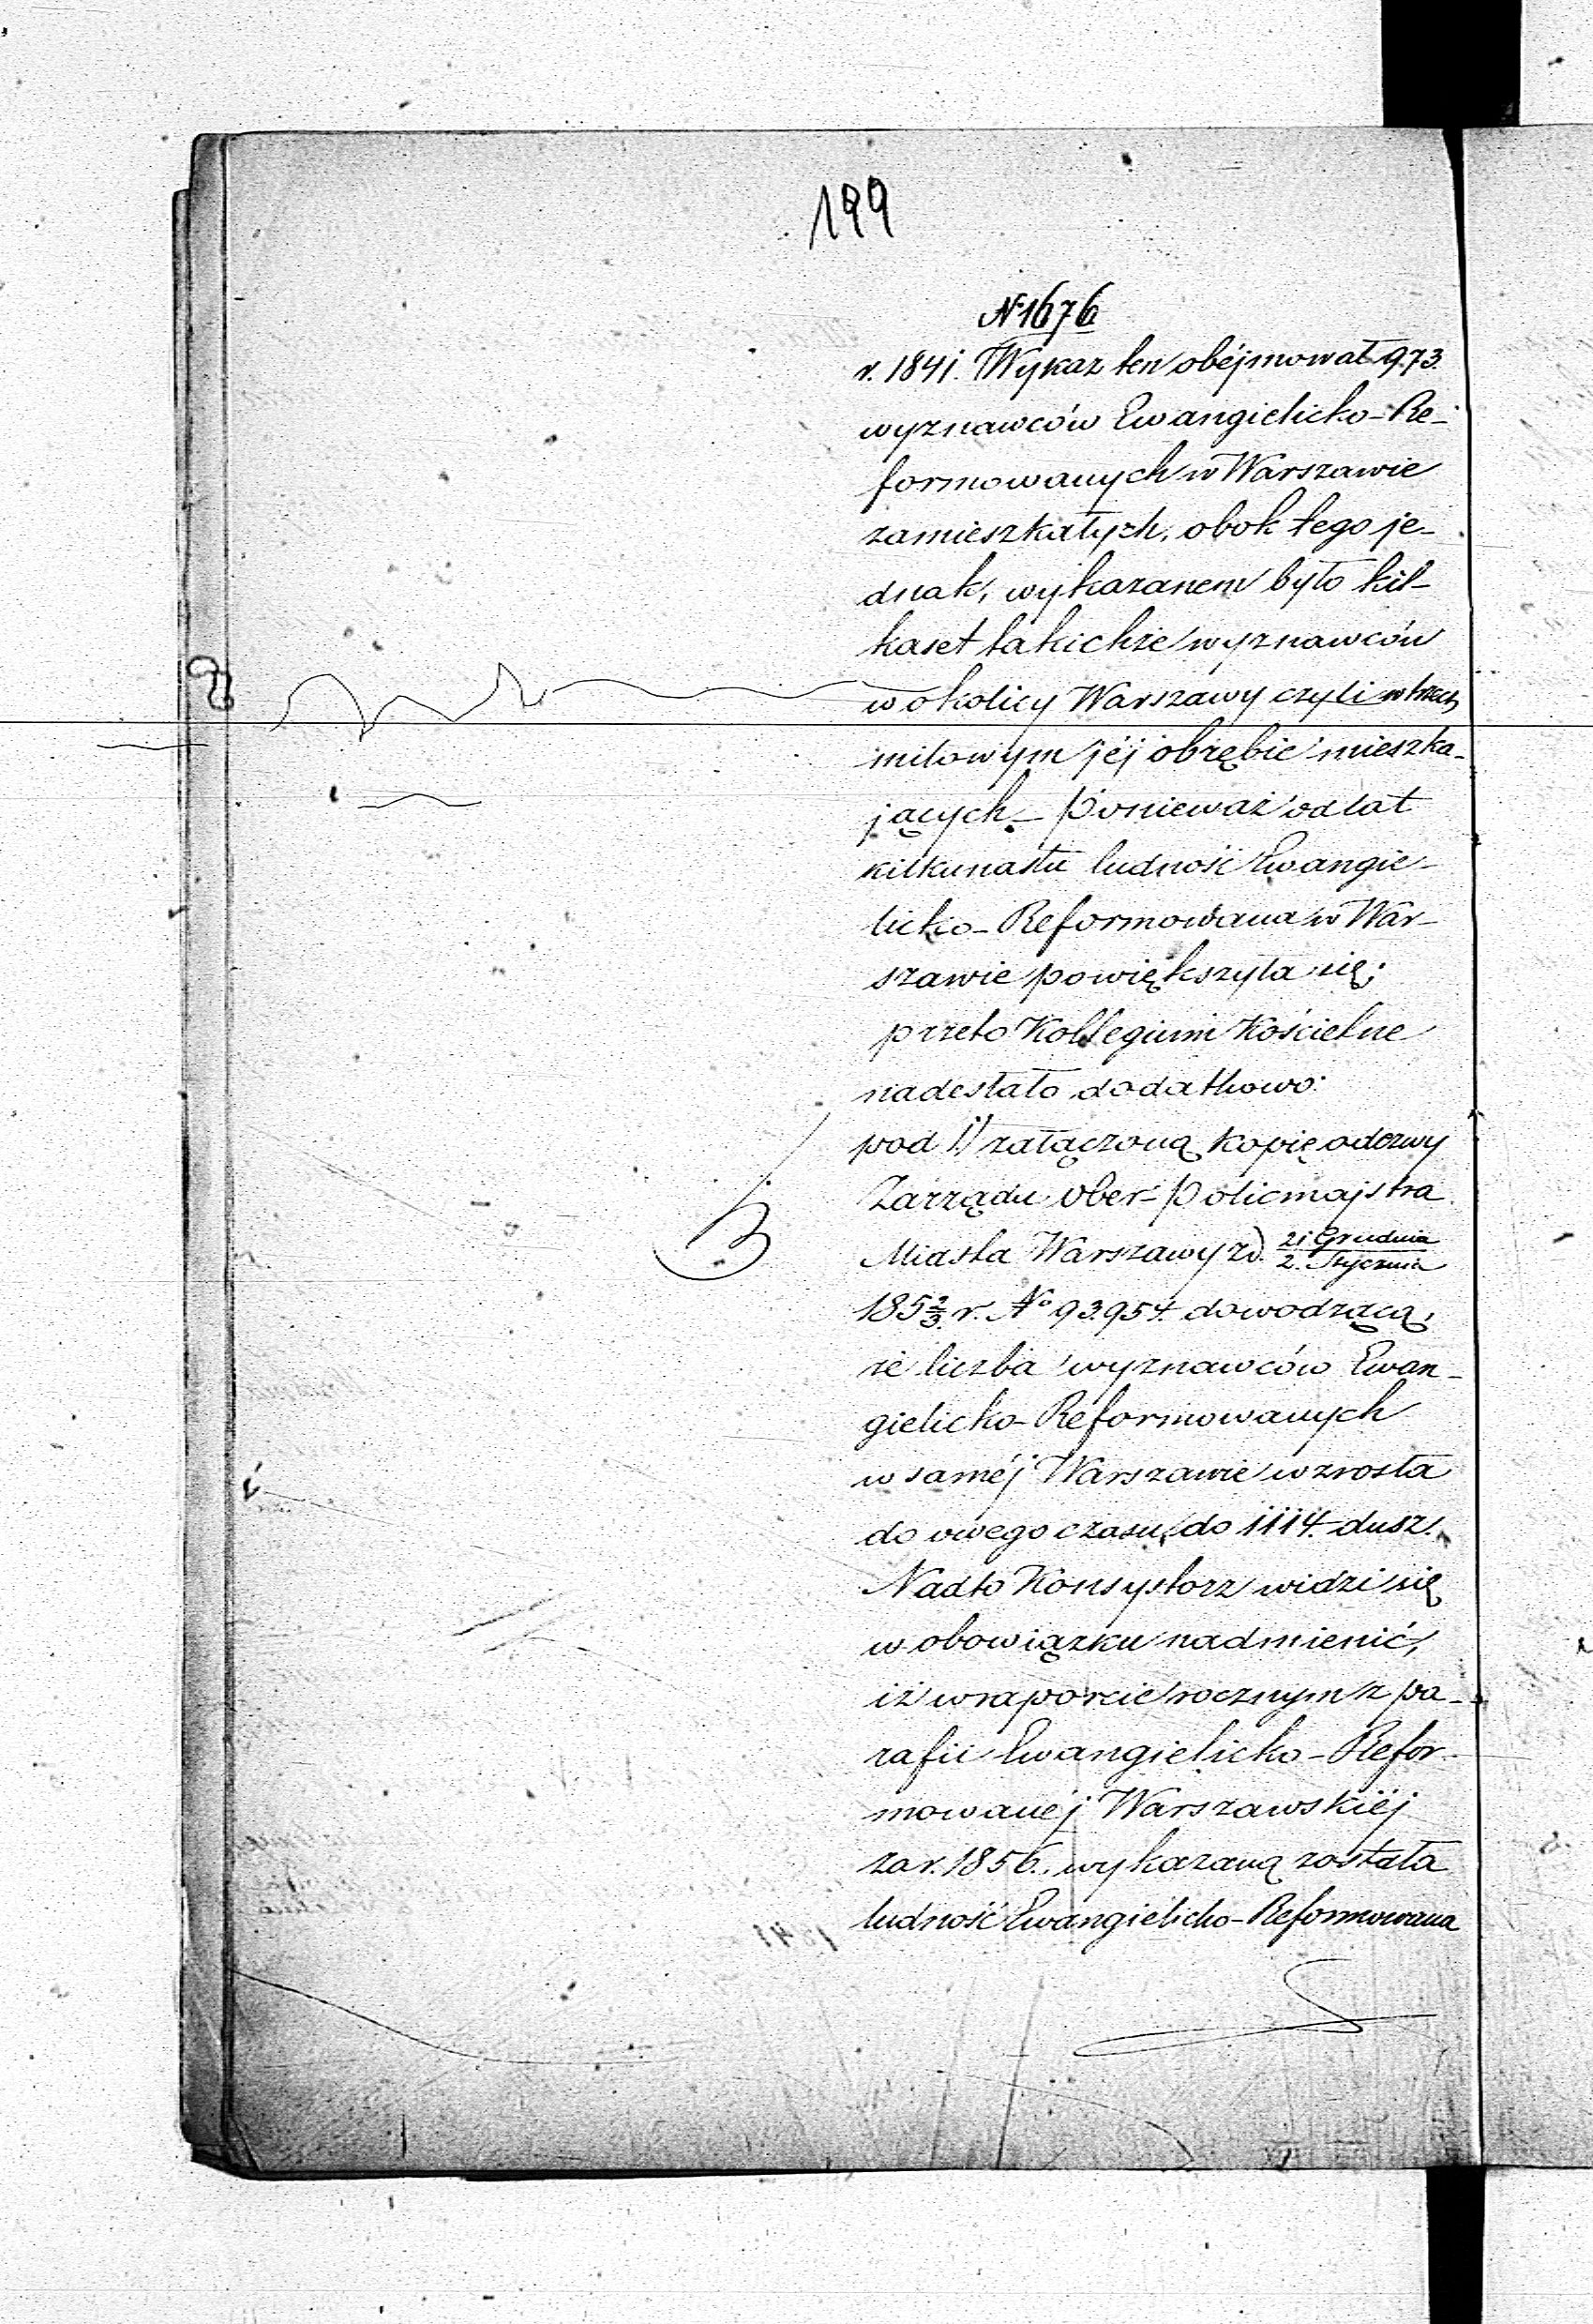 199
№ 1676
r. 1841. Wykaz ten obéjmował 973.
wyznawców Ewangielicko-Re-
formowanych w Warszawie
zamieszkałych, obok tego je-
dnak, wykazanem było kil-
kaset takichże wyznawców
w okolicy Warszawy czyli w trzech
milowym jéj obrębie mieszka-
jących_ Ponieważ od lat
kilkunastu ludność Ewangie-
licko-Reformowana w War-
szawie powiększyła się;
przeto Kollegium Kościelne
nadesłało dodatkowo:
pod 1) załączoną kopię odezwy
Zarządu Ober-Policmajstra
Miasta Warszawy z d. 21 Grudnia / 2. Stycznia
185 2/3 r. № 93.954. dowodzącą,
że liczba wyznawców Ewan-
gielicko-Reformowanych
w saméj Warszawie wzrosła
do owego czasu, do 1114. dusz.
Nadto Konsystorz widzi się
w obowiązku nadmienić,
iż w raporcie rocznym z pa-
rafii Ewangielicko-Refor-
mowanéj Warszawskiéj
za r. 1856. wykazaną została
ludność Ewangielicko-Reformowana